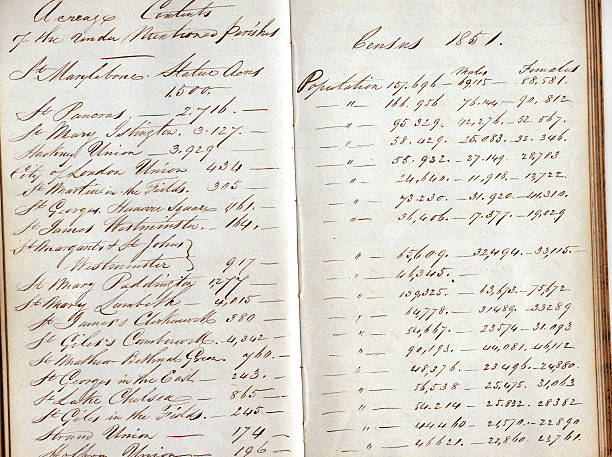 Acreage Contents
of the under Mentioned Parishes
St Marylebone. Statue Acres
1.500.
St Pancras — 2.716. —
St Mary Islington. 3.127. —
Hackney Union — 3.929
City of London Union 434 —
St Martin in the Fields. 305 —
St Georges Hanover Square 1161. —
St James Westminster. — 164. —
St Margarets & St Johns
Westminster } 917 —
St Mary Paddington 1277 —
St Mary Lambeth — 4,015 —
St James's Clerkenwell 380
St Giles's Camberwell. 4,342 —
St Mathew Bethnal Green 760. —
St Georges in the East — 243. —
St Luke Chelsea — 865 —
St Giles in the Fields. — 245 —
Strand Union — 174 —
Holborn Union — 196 —
Census 1851.
Males Females
Population 157,696 — 69115 — 88,581.
— " — 166,956 76,144 — 90,812
— " — 95.329. 42,276 —
— " — 58.429. 25,083. 33.346.
— " — 55,932. — 27,149. 28,783
— " — 24,640. — 11,918. 12,722.
— " — 73.230. — 31.920 — 41,310.
— " — 36,406. — 17,377. — 19,029
— " — 65,609. — 32,494. — 33,115. —
— " — 46,345. —
— " — 139,325. — 63,673. — 75,672
— " — 64,778. — 31489. — 33289
— " — 54,667. — 23574 — 31,093
— " — 90,193. — 44,081. 46,112
— " — 48,376 — 23,496. — 24,880.
— " — 56,538 — 25,475. 31,063
— " — 54.214 — 25.832. 28382
— " — 44460 — 21,570. — 22,890
— " — 46621. — 22,860. 23,761.